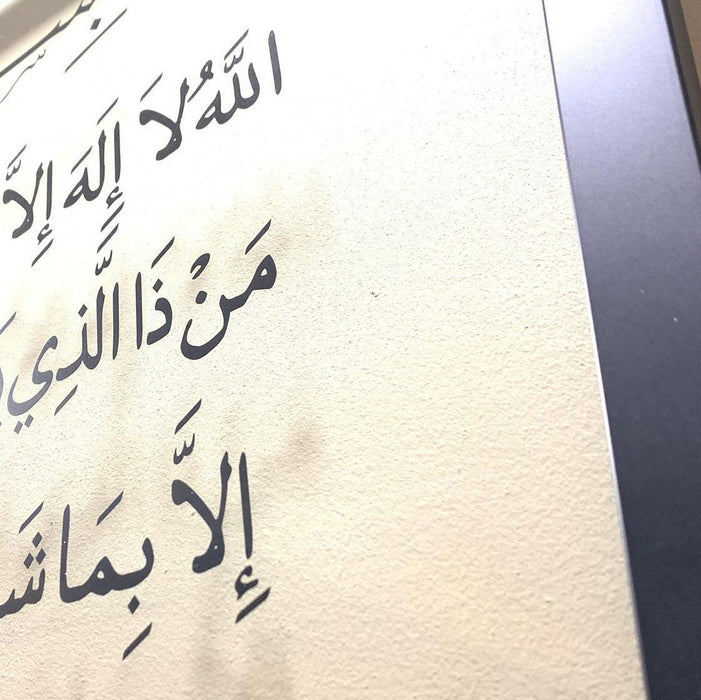 اللَّهُ لَا إِلَهَ إِلَّا
مَنْ ذَا الَّذِي
إِلَّا بِمَا